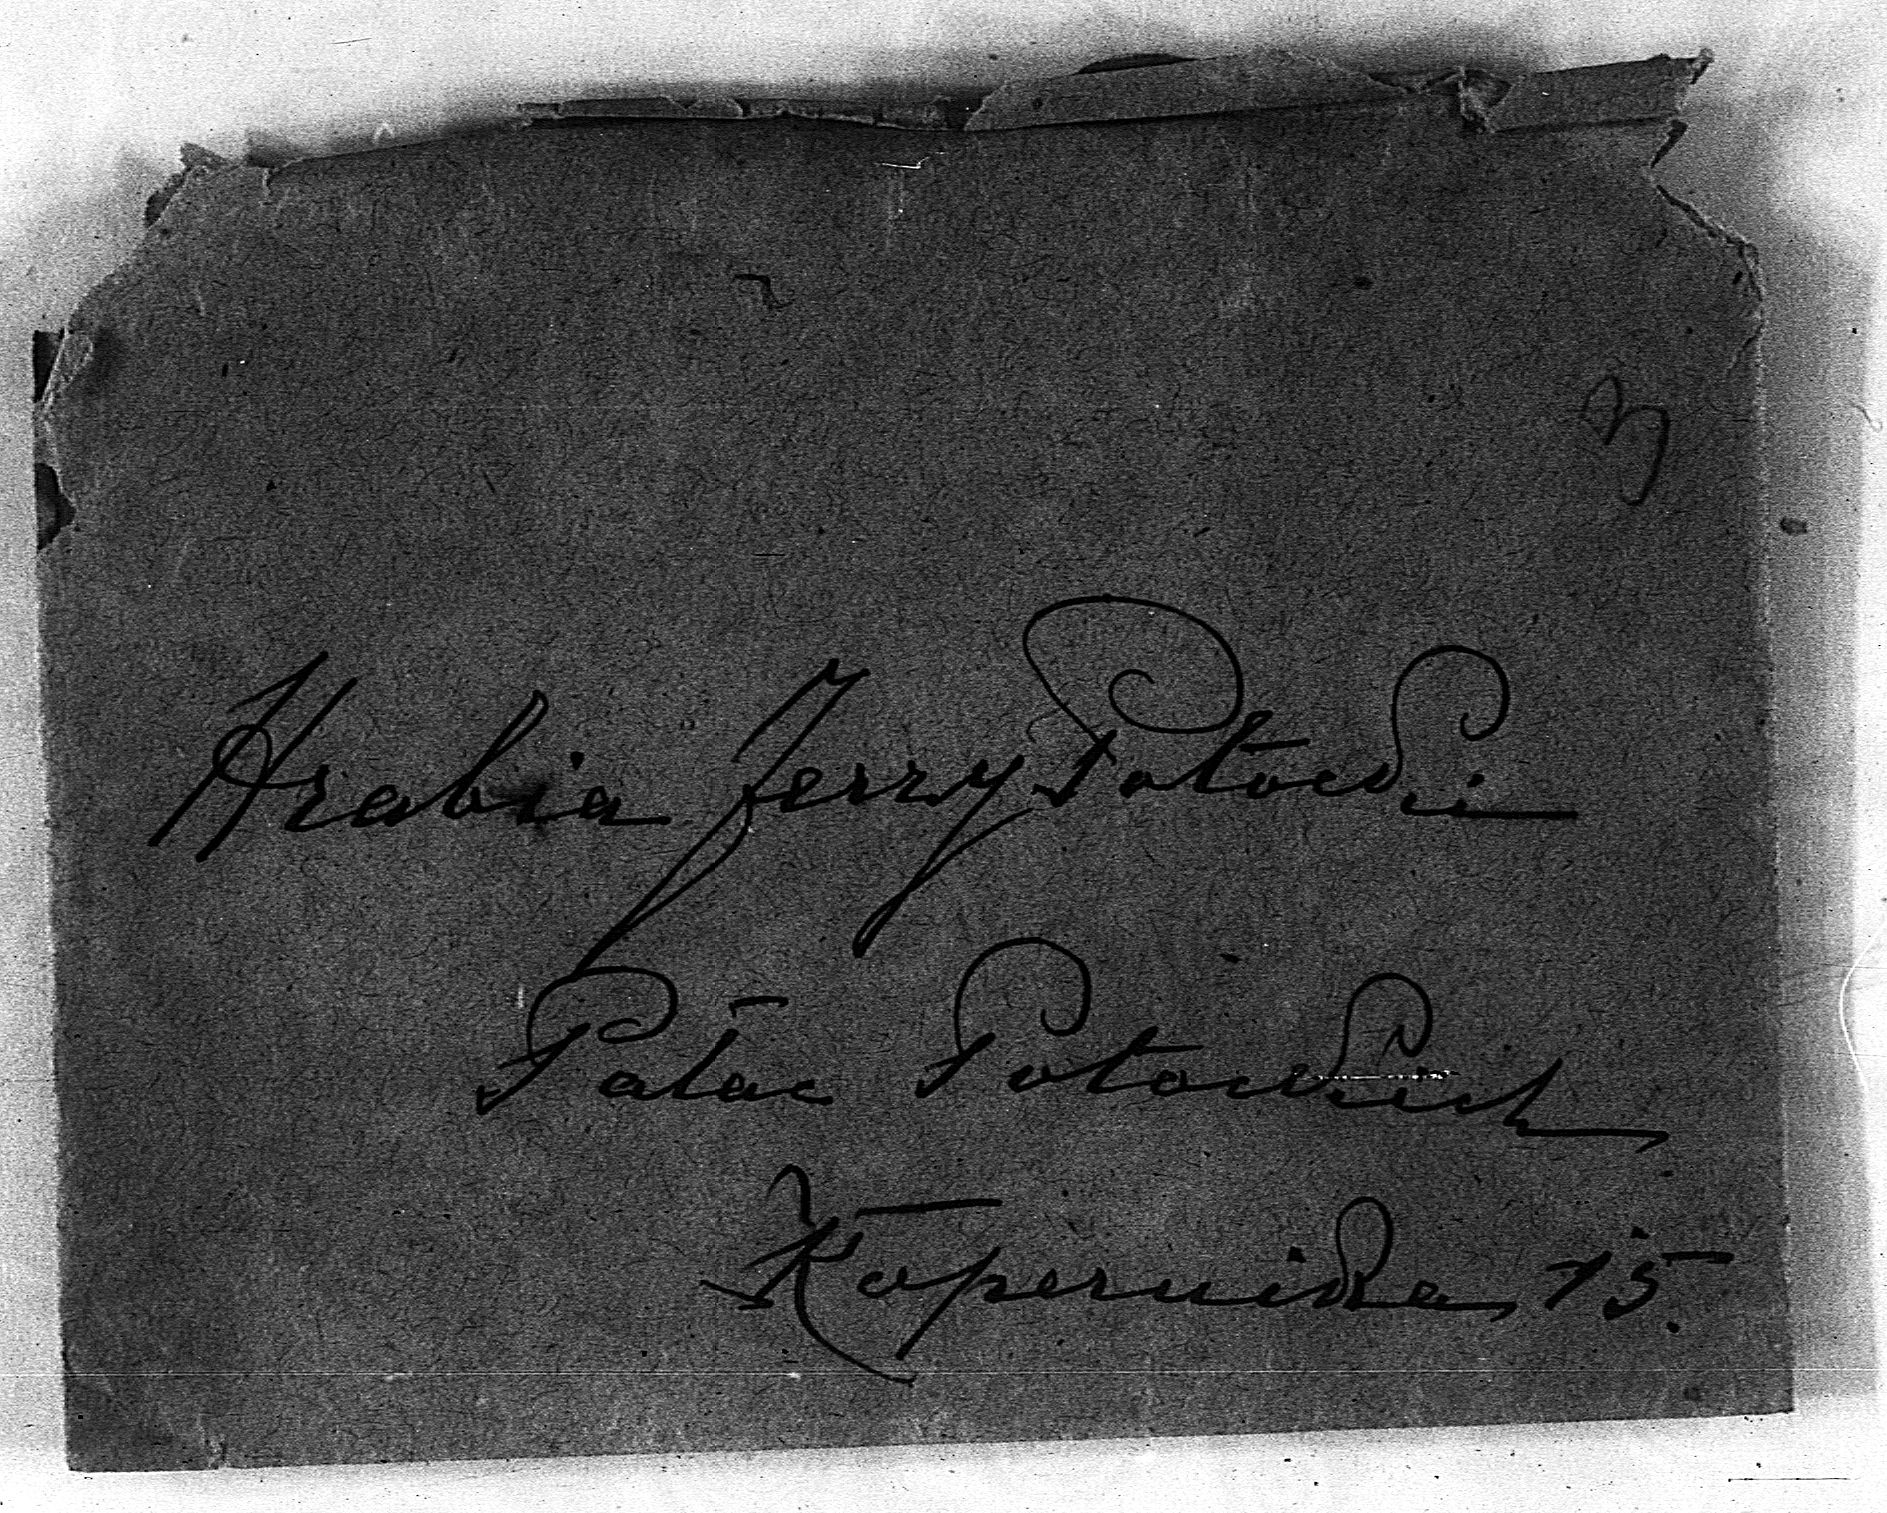 3
Hrabia Jerzy Potocki
Pałac Potockich
Kopernika 15.